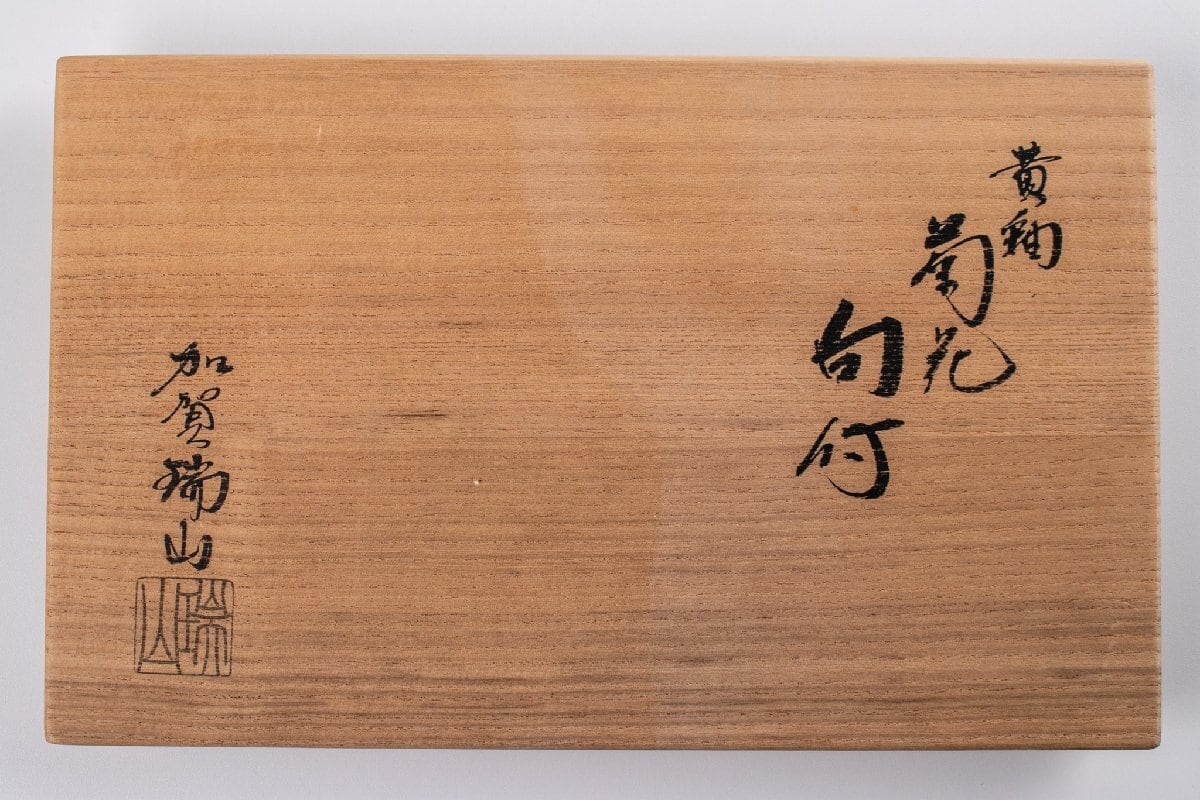 黄釉
菊花
向付
加賀瑞山
瑞山